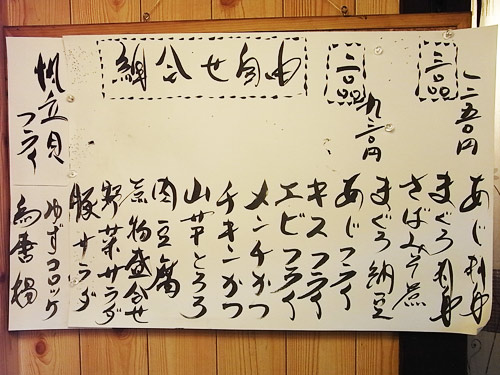 組合せ自由
三品
一二五〇円
二品
九三〇円
あじ刺身
まぐろ刺身
さばみそ煮
まぐろ納豆
あじフライ
キスフライ
エビフライ
メンチかつ
チキンかつ
山芋とろろ
肉豆腐
煮物盛合せ
野菜サラダ
豚サラダ
帆立貝フライ
ゆずコロッケ
鳥唐揚